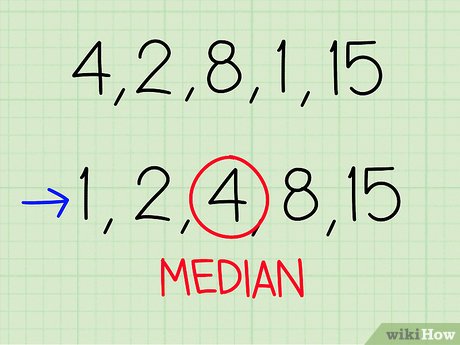 4, 2, 8, 1, 15
1, 2, 4, 8, 15
MEDIAN
wikiHow